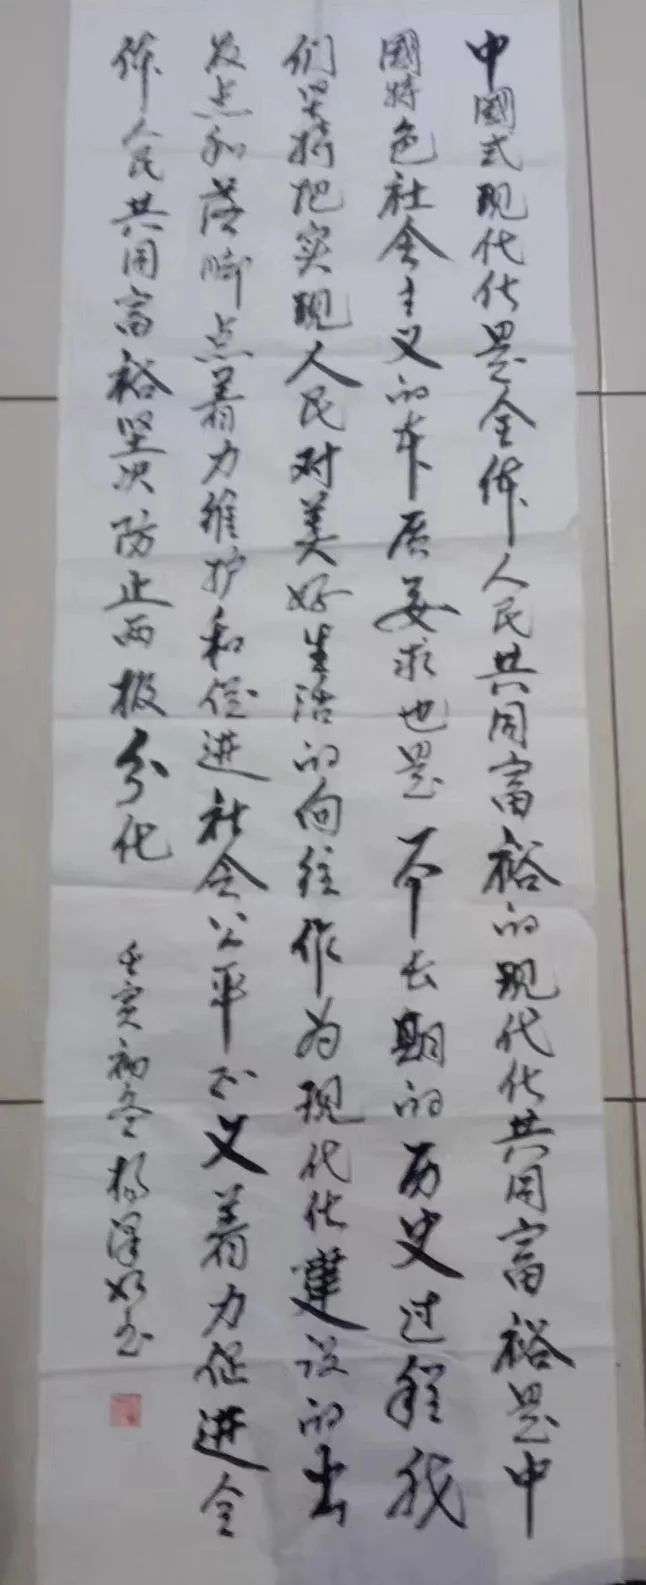 中國式现代化是全体人民共同富裕的现代化共同富裕是中
國特色社会主义的本质要求也是一个长期的历史过程我
们坚持把实现人民对美好生活的向往作为现代化建设的出
发点和落脚点着力维护和促进社会公平正义着力促进全
体人民共同富裕坚决防止两极分化
壬寅初冬杨泽书